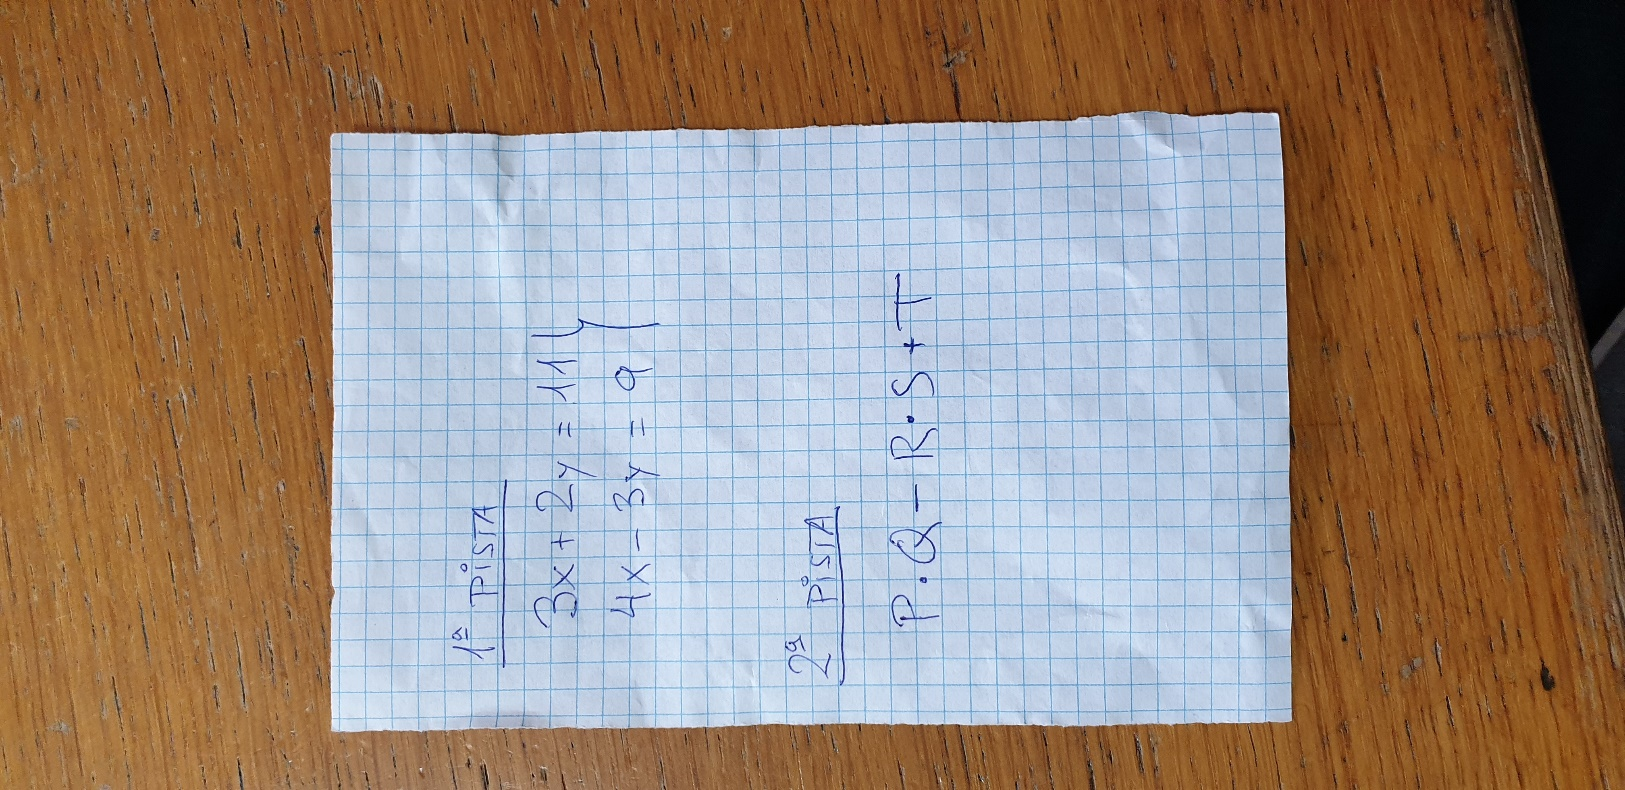 1ª PiSTA
3x + 2y = 11 }
4x - 3y = 9
2ª PiSTA
P·Q - R·S + T